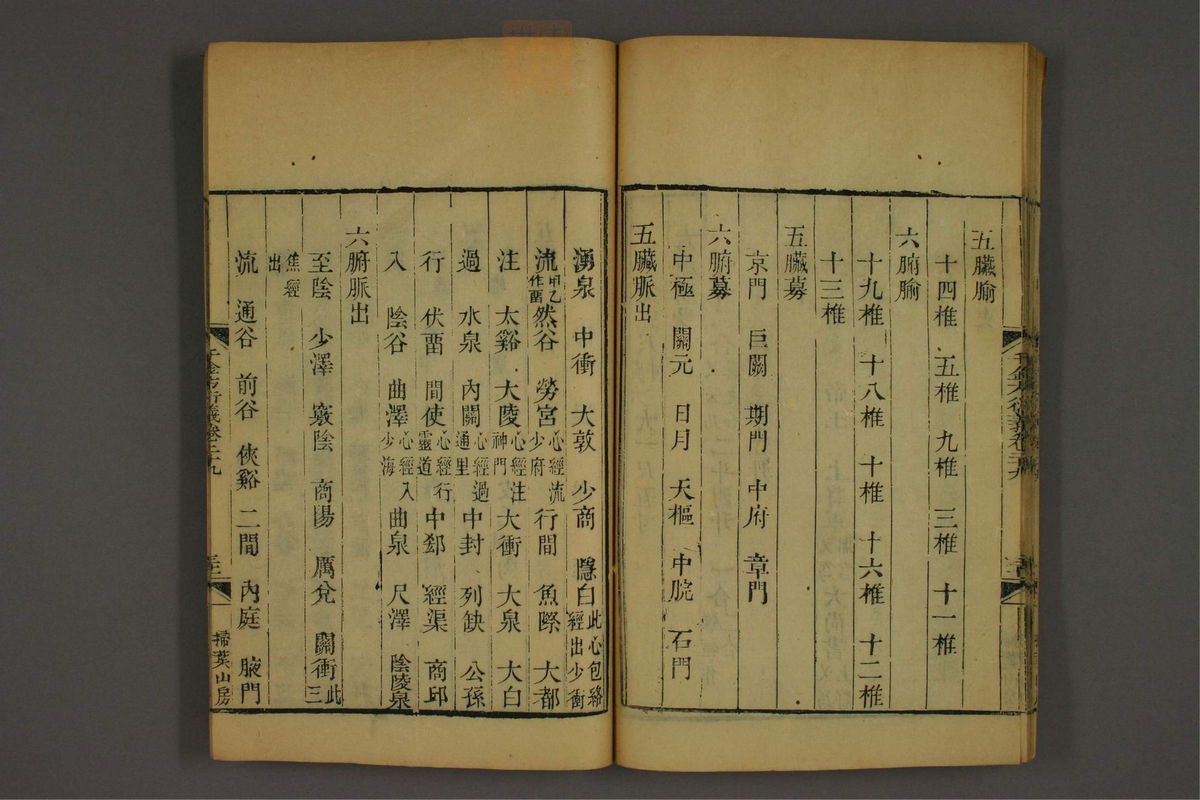 五臟腧
十四椎 五椎 九椎 三椎 十一椎
六腑腧
十九椎 十八椎 十椎 十六椎 十二椎
十三椎
五臟募
京門 巨闕 期門 中府 章門
六腑募
中極 關元 日月 天樞 中脘 石門
五臟脈出
湧泉 中衝 大敦 少商 隱白 此心包絡經出少衝
流 甲乙作畱 然谷 勞宮 心經流少府 行間 魚際 大都
注 太谿 大陵 心經注神門 大衝 大泉 大白
過 水泉 內關 心經過通里 中封 列缺 公孫
行 伏畱 間使 心經行靈道 中郄 經渠 商邱
入 陰谷 曲澤 心經入少海 曲泉 尺澤 陰陵泉
六腑脈出
至陰 少澤 竅陰 商陽 厲兌 關衝 此三
焦經出
流 通谷 前谷 俠谿 二間 內庭 腋門
千金方衍義卷二十九
掃葉山房